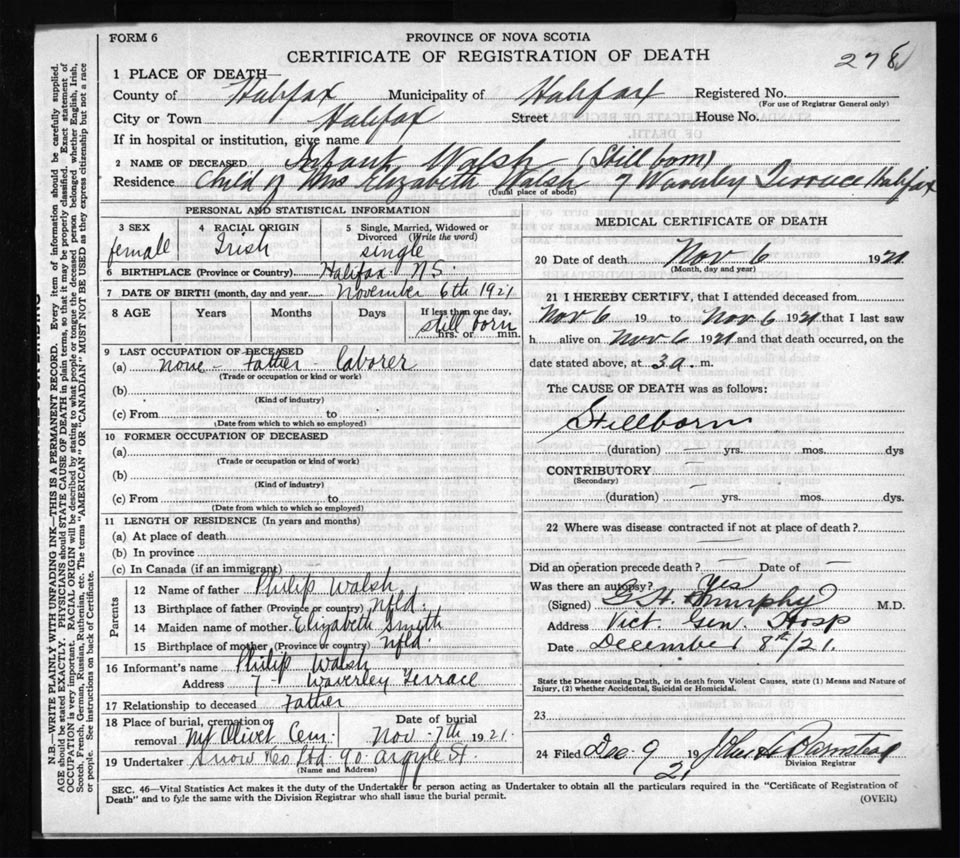 FORM 6
PROVINCE OF NOVA SCOTIA
CERTIFICATE OF REGISTRATION OF DEATH
278
1 PLACE OF DEATH—
County of Halifax Municipality of Halifax Registered No.
(For use of Registrar General only)
City or Town Halifax Street House No.
If in hospital or institution, give name
2 NAME OF DECEASED Infant Walsh (Still born)
Residence Child of Mrs Elizabeth Walsh 7 Waverley Terrace Halifax
(Usual place of abode)
PERSONAL AND STATISTICAL INFORMATION
3 SEX 4 RACIAL ORIGIN 5 Single, Married, Widowed or Divorced (Write the word)
female Irish single
6 BIRTHPLACE (Province or Country) Halifax N.S.
7 DATE OF BIRTH (month, day and year) November 6th 1921
8 AGE Years Months Days If less than one day,
still born
hrs. or min.
9 LAST OCCUPATION OF DECEASED
(a) none - Father laborer
(Trade or occupation or kind or work)
(b)
(Kind of industry)
(c) From to
(Date from which to which so employed)
10 FORMER OCCUPATION OF DECEASED
(a)
(Trade or occupation or kind of work)
(b)
(Kind of industry)
(c) From to
(Date from which to which so employed)
11 LENGTH OF RESIDENCE (In years and months)
(a) At place of death
(b) In province
(c) In Canada (if an immigrant)
Parents
12 Name of father Philip Walsh
13 Birthplace of father (Province or country) Nfld.
14 Maiden name of mother Elizabeth Smith
15 Birthplace of mother (Province or country) Nfld.
16 Informant's name Philip Walsh
Address 7 - Waverley Terrace
17 Relationship to deceased Father
18 Place of burial, cremation or removal Mt Olivet Cem. Date of burial Nov - 7th 1921.
19 Undertaker Snow & Co Ltd. 90 Argyle St.
(Name and Address)
MEDICAL CERTIFICATE OF DEATH
20 Date of death Nov 6 1921
(Month, day and year)
21 I HEREBY CERTIFY, that I attended deceased from
Nov 6 19 to Nov 6 1921 that I last saw
h alive on Nov 6 1921 and that death occurred, on
date stated above, at 3 a. m.
The CAUSE OF DEATH was as follows:
Stillborn
(duration) — yrs. mos. dys
CONTRIBUTORY —
(Secondary)
(duration) — yrs. mos. dys.
22 Where was disease contracted if not at place of death?
Did an operation precede death? — Date of —
Was there an autopsy? Yes
(Signed) G. H. Murphy M.D.
Address Vict. Gen. Hosp
Date December 8th/21.
State the Disease causing Death, or in death from Violent Causes, state (1) Means and Nature of
Injury, (2) whether Accidental, Suicidal or Homicidal.
23
24 Filed Dec. 9 1921 John
Division Registrar
SEC. 46—Vital Statistics Act makes it the duty of the Undertaker or person acting as Undertaker to obtain all the particulars required in the "Certificate of Registration of
Death" and to fyle the same with the Division Registrar who shall issue the burial permit.
(OVER)
N.B.—WRITE PLAINLY WITH UNFADING INK—THIS IS A PERMANENT RECORD. Every item of information should be carefully supplied.
AGE should be stated EXACTLY. PHYSICIANS should STATE CAUSE OF DEATH in plain terms, so that it may be properly classified. Exact statement of
OCCUPATION is very important. RACIAL ORIGIN will be described by stating to what people or tongue the deceased person belonged whether English, Irish,
Scotch, French, German, Russian, Ruthenian, etc. The terms "AMERICAN" OR "CANADIAN" MUST NOT BE USED as they express citizenship but not a race
or people. See instructions on back of Certificate.